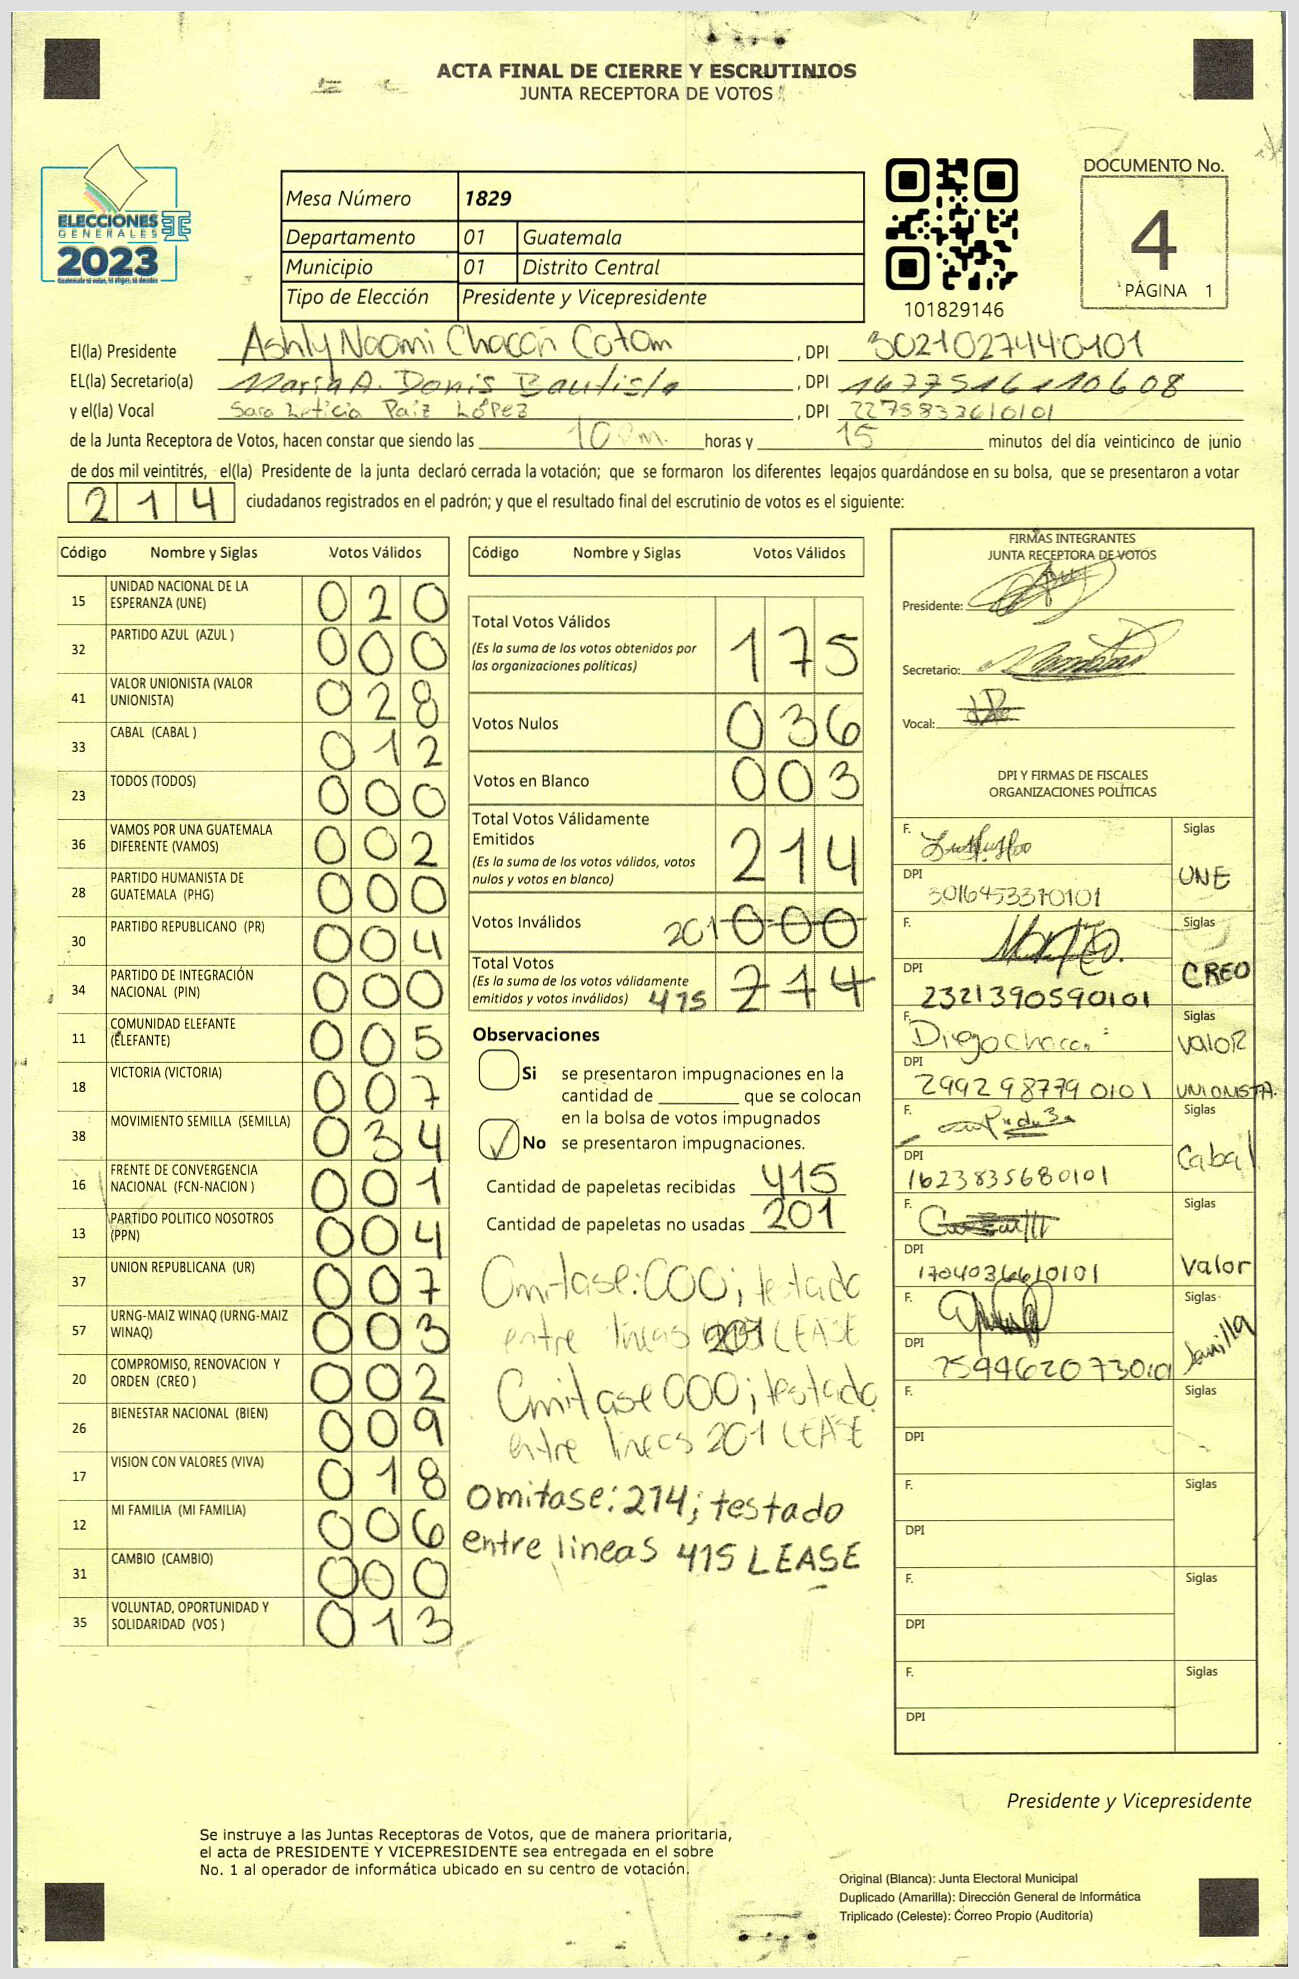 ACTA FINAL DE CIERRE Y ESCRUTINIOS
JUNTA RECEPTORA DE VOTOS
ELECCIONES
GENERALES
2023
Mesa Número 1829
Departamento 01 Guatemala
Municipio 01 Distrito Central
Tipo de Elección Presidente y Vicepresidente
101829146
DOCUMENTO No.
4
PÁGINA 1
El(la) Presidente Ashly Naomi Chacón Cotom, DPI 3021027440101
EL(la) Secretario(a) María A. Donis Bautista, DPI 1677516110608
y el(la) Vocal Sara Leticia Paiz López, DPI 2275833610101
de la Junta Receptora de Votos, hacen constar que siendo las 10 pm. horas y 15 minutos del día veinticinco de junio
de dos mil veintitrés, el(la) Presidente de la junta declaró cerrada la votación; que se formaron los diferentes legajos guardándose en su bolsa, que se presentaron a votar
214 ciudadanos registrados en el padrón; y que el resultado final del escrutinio de votos es el siguiente:
Código Nombre y Siglas Votos Válidos
15 UNIDAD NACIONAL DE LA ESPERANZA (UNE) 020
32 PARTIDO AZUL (AZUL ) 000
41 VALOR UNIONISTA (VALOR UNIONISTA) 028
33 CABAL (CABAL ) 012
23 TODOS (TODOS) 000
36 VAMOS POR UNA GUATEMALA DIFERENTE (VAMOS) 002
28 PARTIDO HUMANISTA DE GUATEMALA (PHG) 000
30 PARTIDO REPUBLICANO (PR) 004
34 PARTIDO DE INTEGRACIÓN NACIONAL (PIN) 000
11 COMUNIDAD ELEFANTE (ELEFANTE) 005
18 VICTORIA (VICTORIA) 007
38 MOVIMIENTO SEMILLA (SEMILLA) 034
16 FRENTE DE CONVERGENCIA NACIONAL (FCN-NACION ) 001
13 PARTIDO POLITICO NOSOTROS (PPN) 004
37 UNION REPUBLICANA (UR) 007
57 URNG-MAIZ WINAQ (URNG-MAIZ WINAQ) 003
20 COMPROMISO, RENOVACION Y ORDEN (CREO ) 002
26 BIENESTAR NACIONAL (BIEN) 009
17 VISION CON VALORES (VIVA) 018
12 MI FAMILIA (MI FAMILIA) 006
31 CAMBIO (CAMBIO) 000
35 VOLUNTAD, OPORTUNIDAD Y SOLIDARIDAD (VOS ) 013
Código Nombre y Siglas Votos Válidos
Total Votos Válidos 175
(Es la suma de los votos obtenidos por
las organizaciones políticas)
Votos Nulos 036
Votos en Blanco 003
Total Votos Válidamente
Emitidos 214
(Es la suma de los votos válidos, votos
nulos y votos en blanco)
Votos Inválidos 201 000
Total Votos
(Es la suma de los votos válidamente
emitidos y votos inválidos) 415 214
Observaciones
Si se presentaron impugnaciones en la
cantidad de ________ que se colocan
en la bolsa de votos impugnados
No se presentaron impugnaciones.
Cantidad de papeletas recibidas 415
Cantidad de papeletas no usadas 201
Omitase: 000; testado
entre lineas 201 LEASE
Omitase 000; testado
entre lineas 201 LEASE
omitase: 214; testado
entre lineas 415 LEASE
FIRMAS INTEGRANTES
JUNTA RECEPTORA DE VOTOS
Presidente:
Secretario:
Vocal:
DPI Y FIRMAS DE FISCALES
ORGANIZACIONES POLÍTICAS
F. Siglas
DPI 3016453370101 UNE
F. Siglas
DPI 2321390590101 CREO
F. Diego chacon Siglas
DPI 2992987790101 VALOR UNIONISTA
F. Siglas
DPI 1623835680101 Cabal
F. Siglas
DPI 1704036610101 Valor
F. Siglas
DPI Semilla
F. Siglas
DPI
F. Siglas
DPI
F. Siglas
DPI
F. Siglas
DPI
Presidente y Vicepresidente
Se instruye a las Juntas Receptoras de Votos, que de manera prioritaria,
el acta de PRESIDENTE Y VICEPRESIDENTE sea entregada en el sobre
No. 1 al operador de informática ubicado en su centro de votación.
Original (Blanca): Junta Electoral Municipal
Duplicado (Amarilla): Dirección General de Informática
Triplicado (Celeste): Correo Propio (Auditoría)